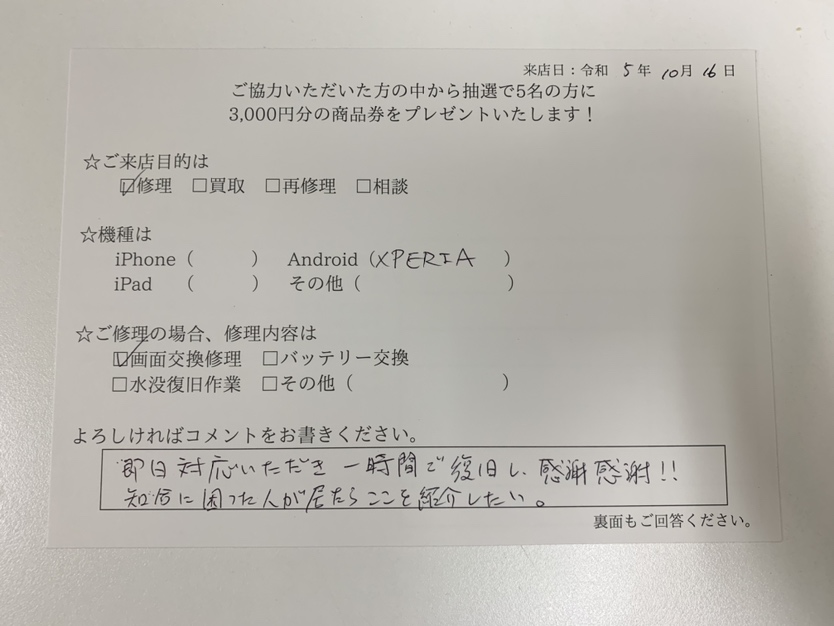 来店日：令和 5 年 10月 16 日
ご協力いただいた方の中から抽選で5名の方に
3,000円分の商品券をプレゼントいたします！
☆ご来店目的は
☑修理 □買取 □再修理 □相談
☆機種は
iPhone（ ） Android（XPERIA ）
iPad （ ） その他（ ）
☆ご修理の場合、修理内容は
☑画面交換修理 □バッテリー交換
□水没復旧作業 □その他（ ）
よろしければコメントをお書きください。
即日対応いただき一時間で復旧し、感謝感謝!!
知合に困った人が居たらここを紹介したい。
裏面もご回答ください。